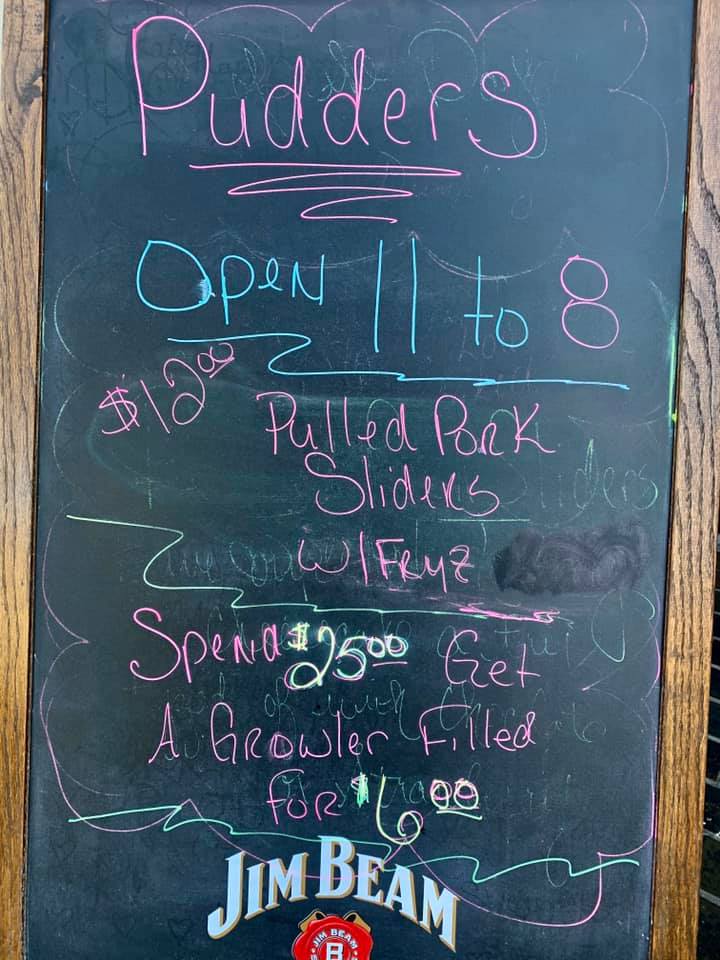 Pudders
Open 11 to 8
$12.00
Pulled Pork
Sliders
W/FRYZ
Spend $25.00 Get
A Growler Filled
for $6.00
JIM BEAM
JIM BEAM
B